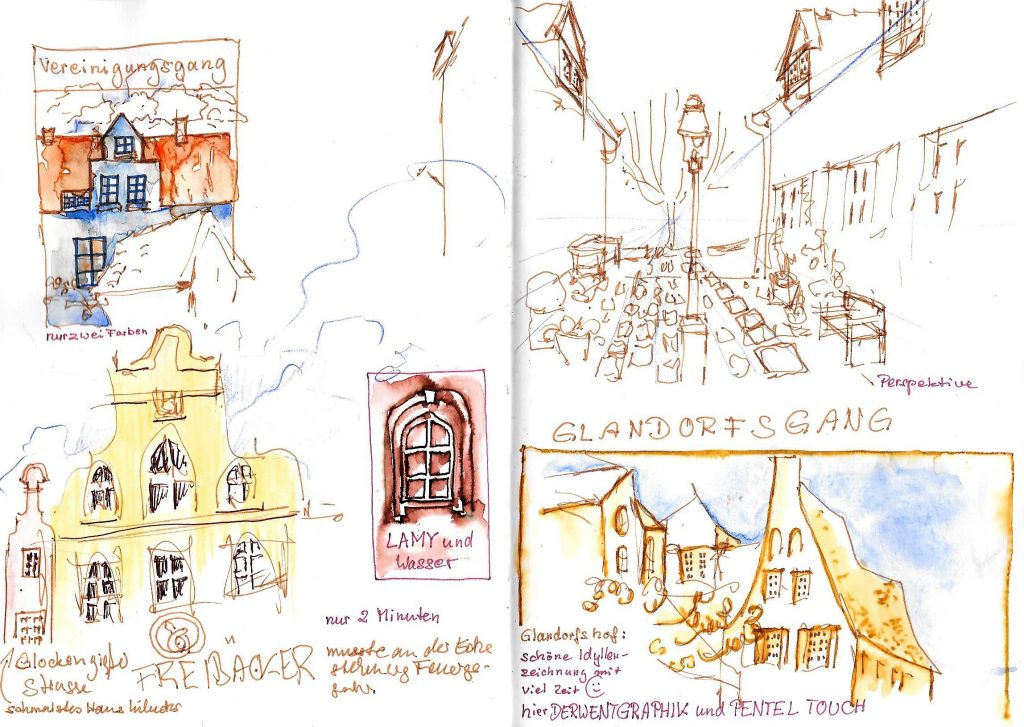 Vereinigungsgang
nur zwei Farben
LAMY und
Wasser
nur 2 Minuten
musste an der Ecke
Glockengieße
Strasse
FREIBÄCKER
schmalstes Haus Lübecks
Perspektive
GLANDORFSGANG
Glandorfshof:
schöne Idyllen-
zeichnung mit
viel Zeit ☺
hier DERWENTGRAPHIK und PENTEL TOUCH